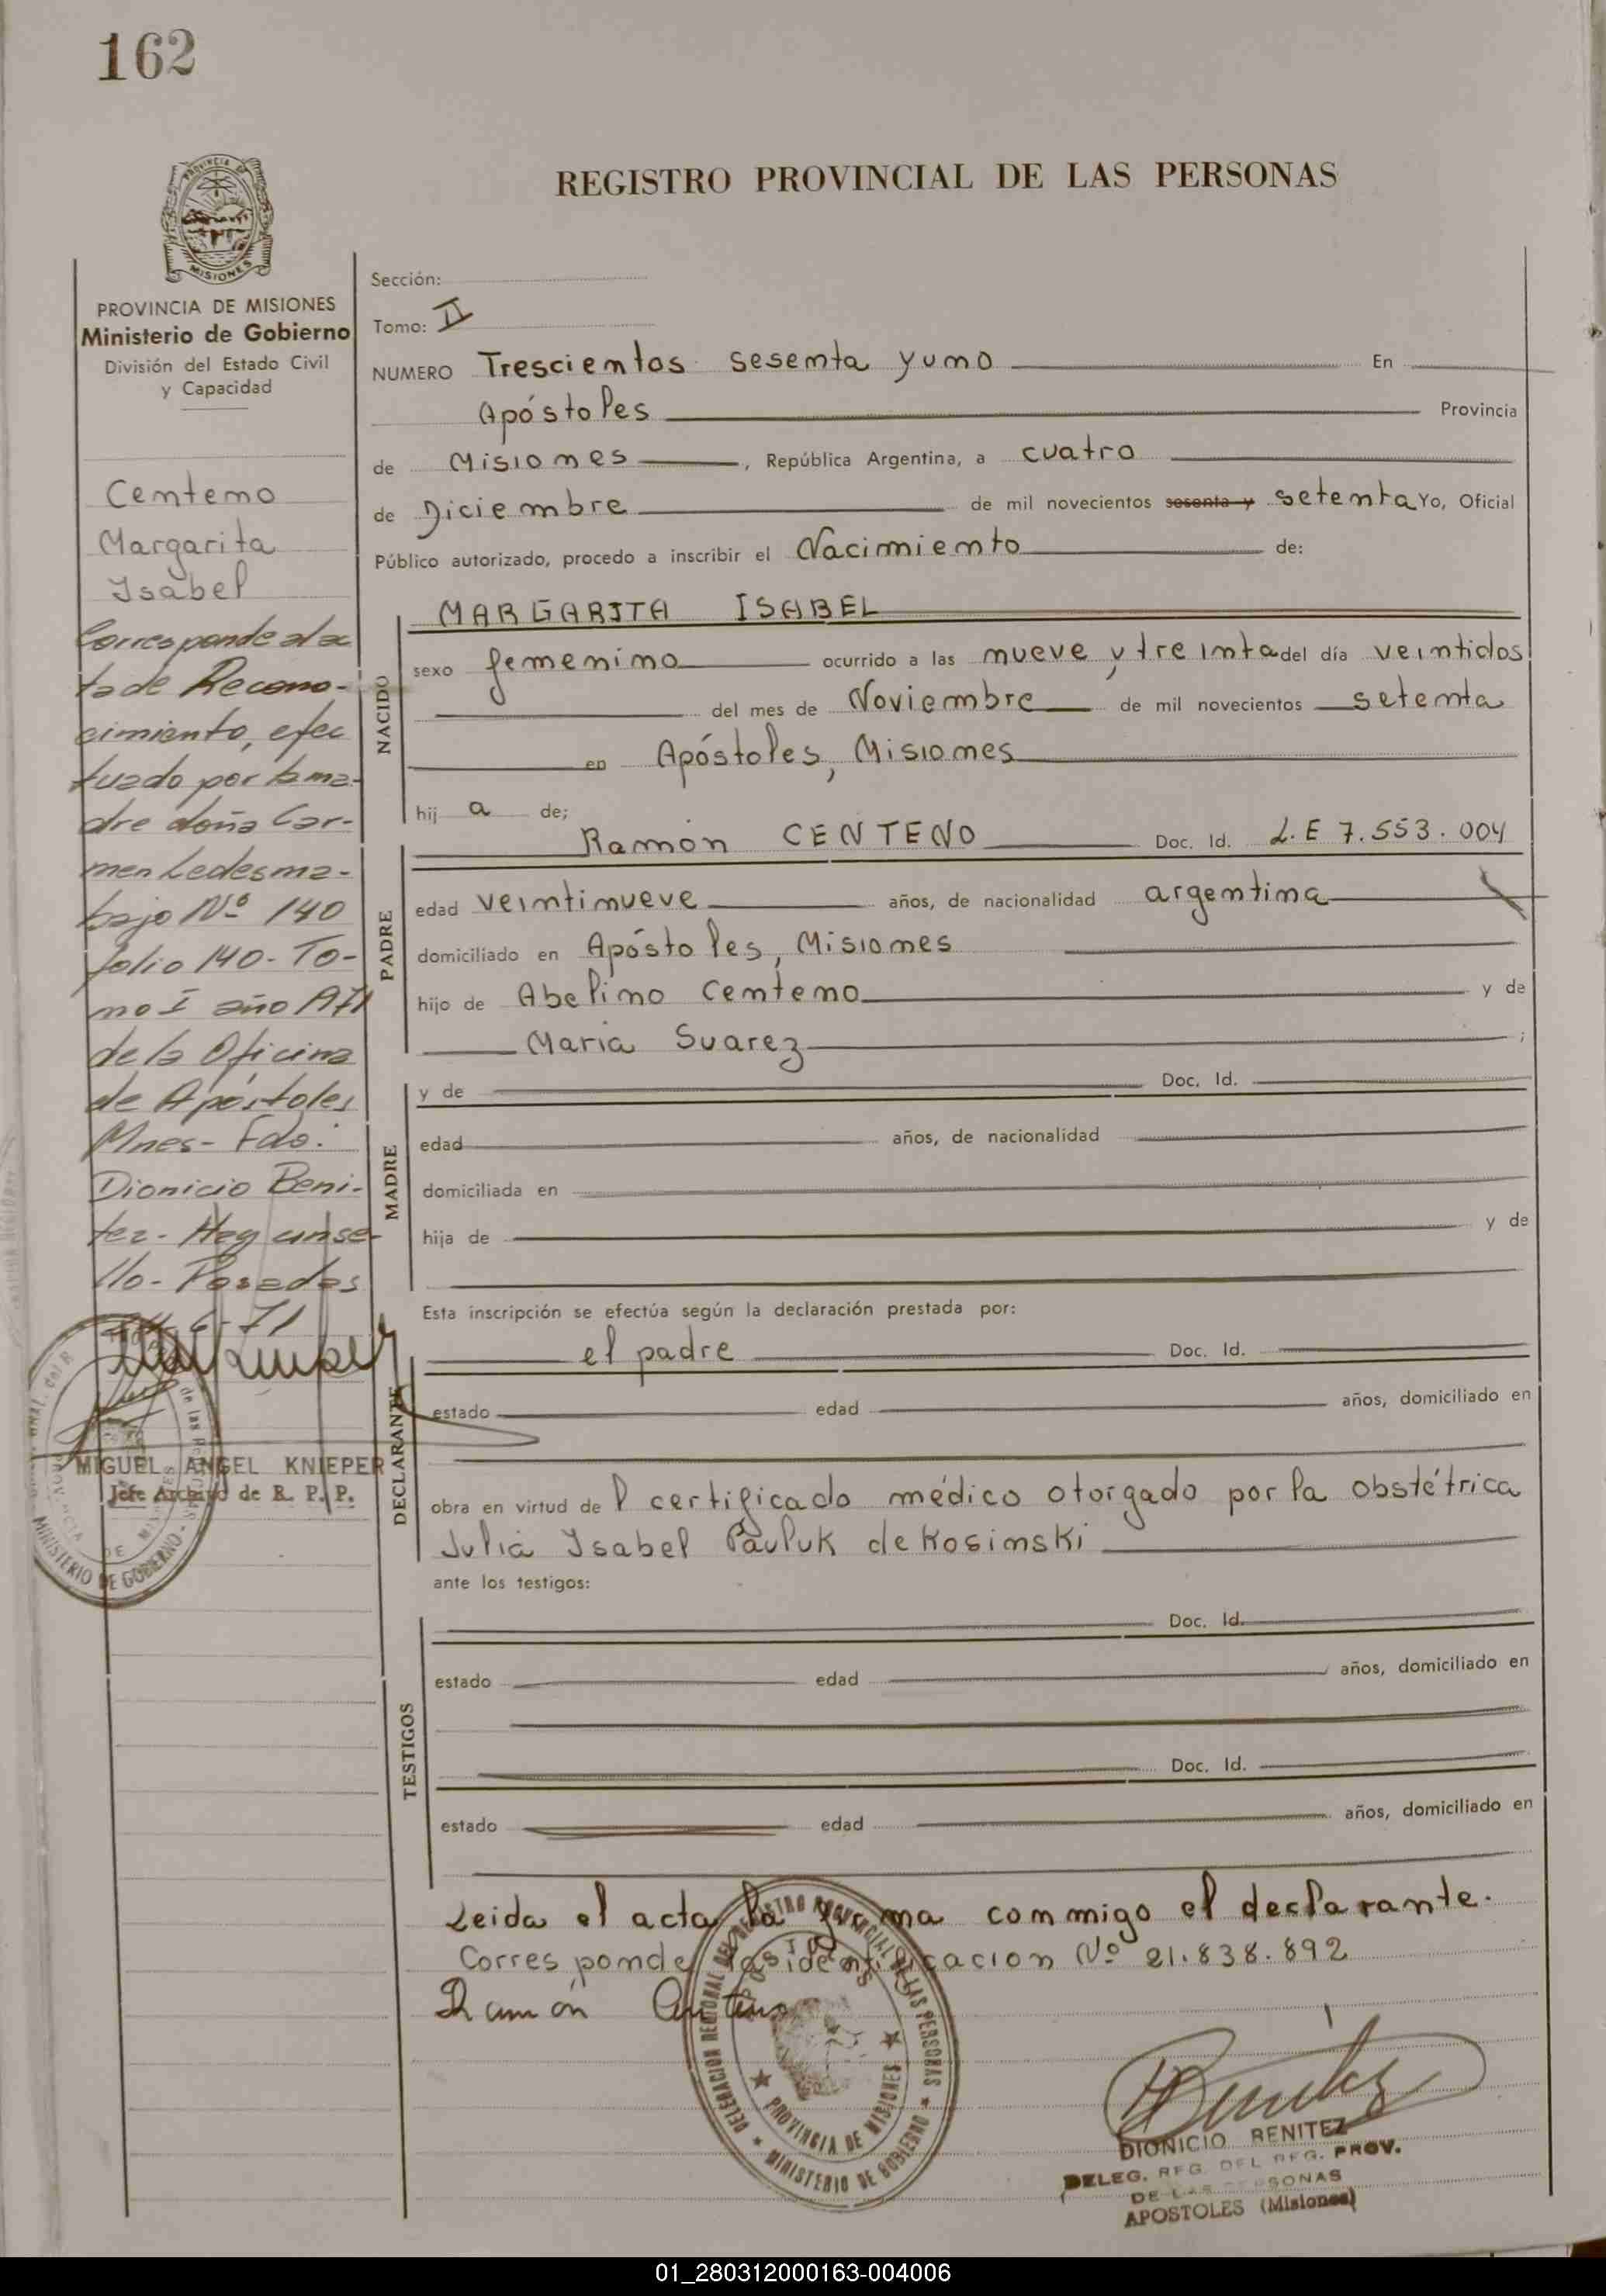 162
REGISTRO PROVINCIAL DE LAS PERSONAS
PROVINCIA DE
MISIONES
PROVINCIA DE MISIONES
Ministerio de Gobierno
División del Estado Civil
y Capacidad
Centeno
Margarita
Isabel
Corresponde al ac
ta de Recono-
cimiento, efec
tuado por la ma-
dre doña Car-
men Ledesma-
bajo Nº 140
folio 140- To-
mo I año 971
de la Oficina
de Apóstoles
Mnes- Fdo:
Dionicio Beni-
tez- Hay un se-
llo- Posadas
6-71
MIGUEL ANGEL KNIEPER
Jefe Archivo de R. P. P.
MINISTERIO DE GOBIERNO
Sección:
Tomo: II
NUMERO Trescientos sesenta y uno En
Apóstoles Provincia
de Misiones, República Argentina, a cuatro
de Diciembre de mil novecientos sesenta y setenta Yo, Oficial
Público autorizado, procedo a inscribir el Nacimiento de:
NACIDO
MARGARITA ISABEL
sexo femenino ocurrido a las nueve y treinta del día veintidos
del mes de Noviembre de mil novecientos setenta
en Apóstoles, Misiones
hij a de;
PADRE
Ramón CENTENO Doc. Id. L.E 7.553.004
edad veintinueve años, de nacionalidad argentina
domiciliado en Apóstoles, Misiones
hijo de Abelino Centeno y de
Maria Suarez ;
MADRE
y de Doc. Id.
edad años, de nacionalidad
domiciliada en
hija de y de
Esta inscripción se efectúa según la declaración prestada por:
DECLARANTE
el padre Doc. Id.
estado edad años, domiciliado en
obra en virtud de l certificado médico otorgado por la obstétrica
Julia Isabel Pauluk de Kosinski
ante los testigos:
TESTIGOS
Doc. Id.
estado edad años, domiciliado en
Doc. Id.
estado edad años, domiciliado en
Leida el acta la firma conmigo el declarante.
Corresponde la identificacion Nº 21.838.892
Ramón Centeno
DELEGACION REGIONAL DEL REGISTRO PROVINCIAL DE LAS PERSONAS
APOSTOLES
PROVINCIA DE MISIONES
MINISTERIO DE GOBIERNO
Benitez
DIONICIO BENITEZ
DELEG. REG. DEL REG. PROV.
DE LAS PERSONAS
APOSTOLES (Misiones)
01_280312000163-004006